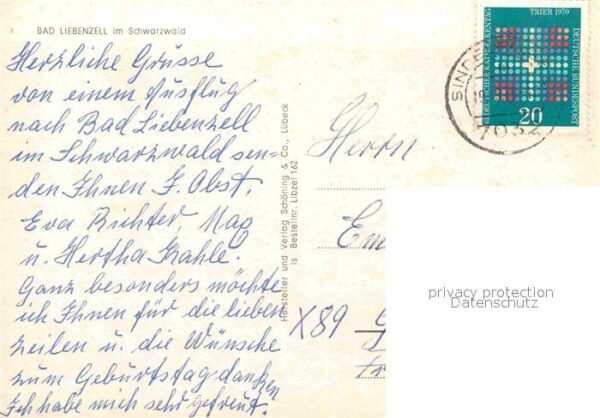 BAD LIEBENZELL im Schwarzwald
Herzliche Grüsse
von einem Ausflug
nach Bad Liebenzell
im Schwarzwald sen=
den Ihnen J. Obst,
Eva Richter, Max
u. Hertha Krahle.
Ganz besonders möchte
ich Ihnen für die lieben
Zeilen u. die Wünsche
zum Geburtstag danken
Ich habe mich sehr gefreut.
Hersteller und Verlag Schöning & Co., Lübeck
is Bestellnr. Libzel 162
DEUTSCHER KATHOLIKENTAG
TRIER 1970
DEUTSCHE BUNDESPOST
20
SINDE
7032
Herrn
Em
X89
privacy protection
Datenschutz